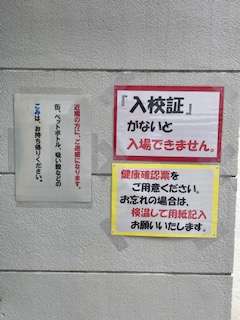 近隣の方に、ご迷惑になります。
缶、ペットボトル、吸い殻などの
ごみは、お持ち帰りください。
『入校証』
がないと
入場できません。
健康確認票を
ご用意ください。
お忘れの場合は、
検温して用紙記入
お願いいたします。